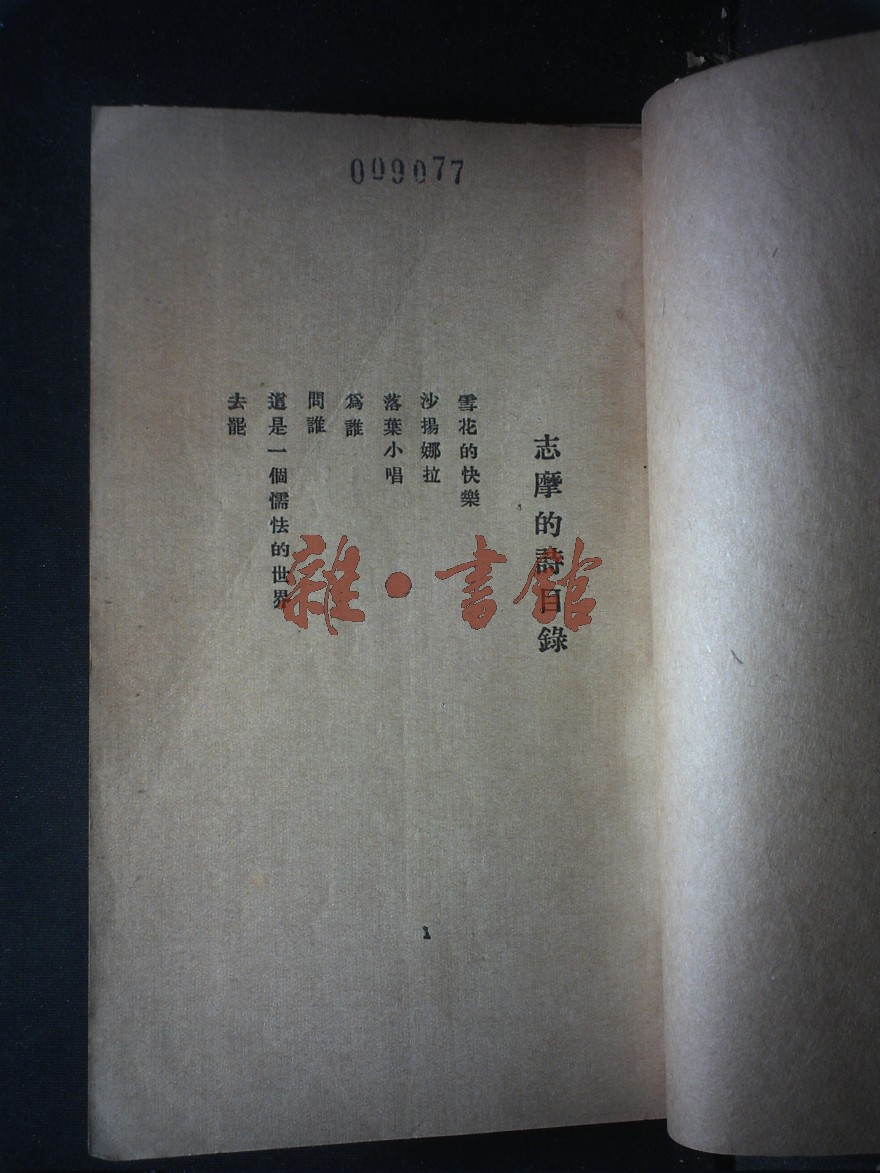 099077
志摩的詩目錄
雪花的快樂
沙揚娜拉
落葉小唱
爲誰
問誰
這是一個懦怯的世界
去罷
雜·書館
1